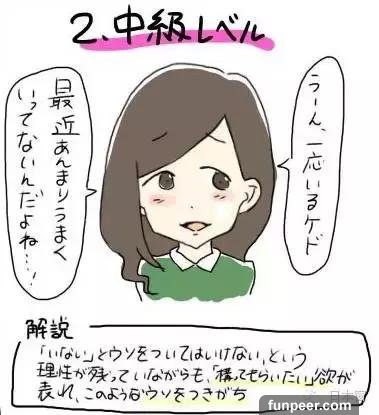 2.中級レベル
うーん、一応いるケド
最近あんまりうまく
いってないんだよね…！
解説
「いない」とウソをついてはいけない、という
理性が残っていながらも、「構ってもらいたい」欲が
表れ、このようなウソをつきがち
funpeer.com